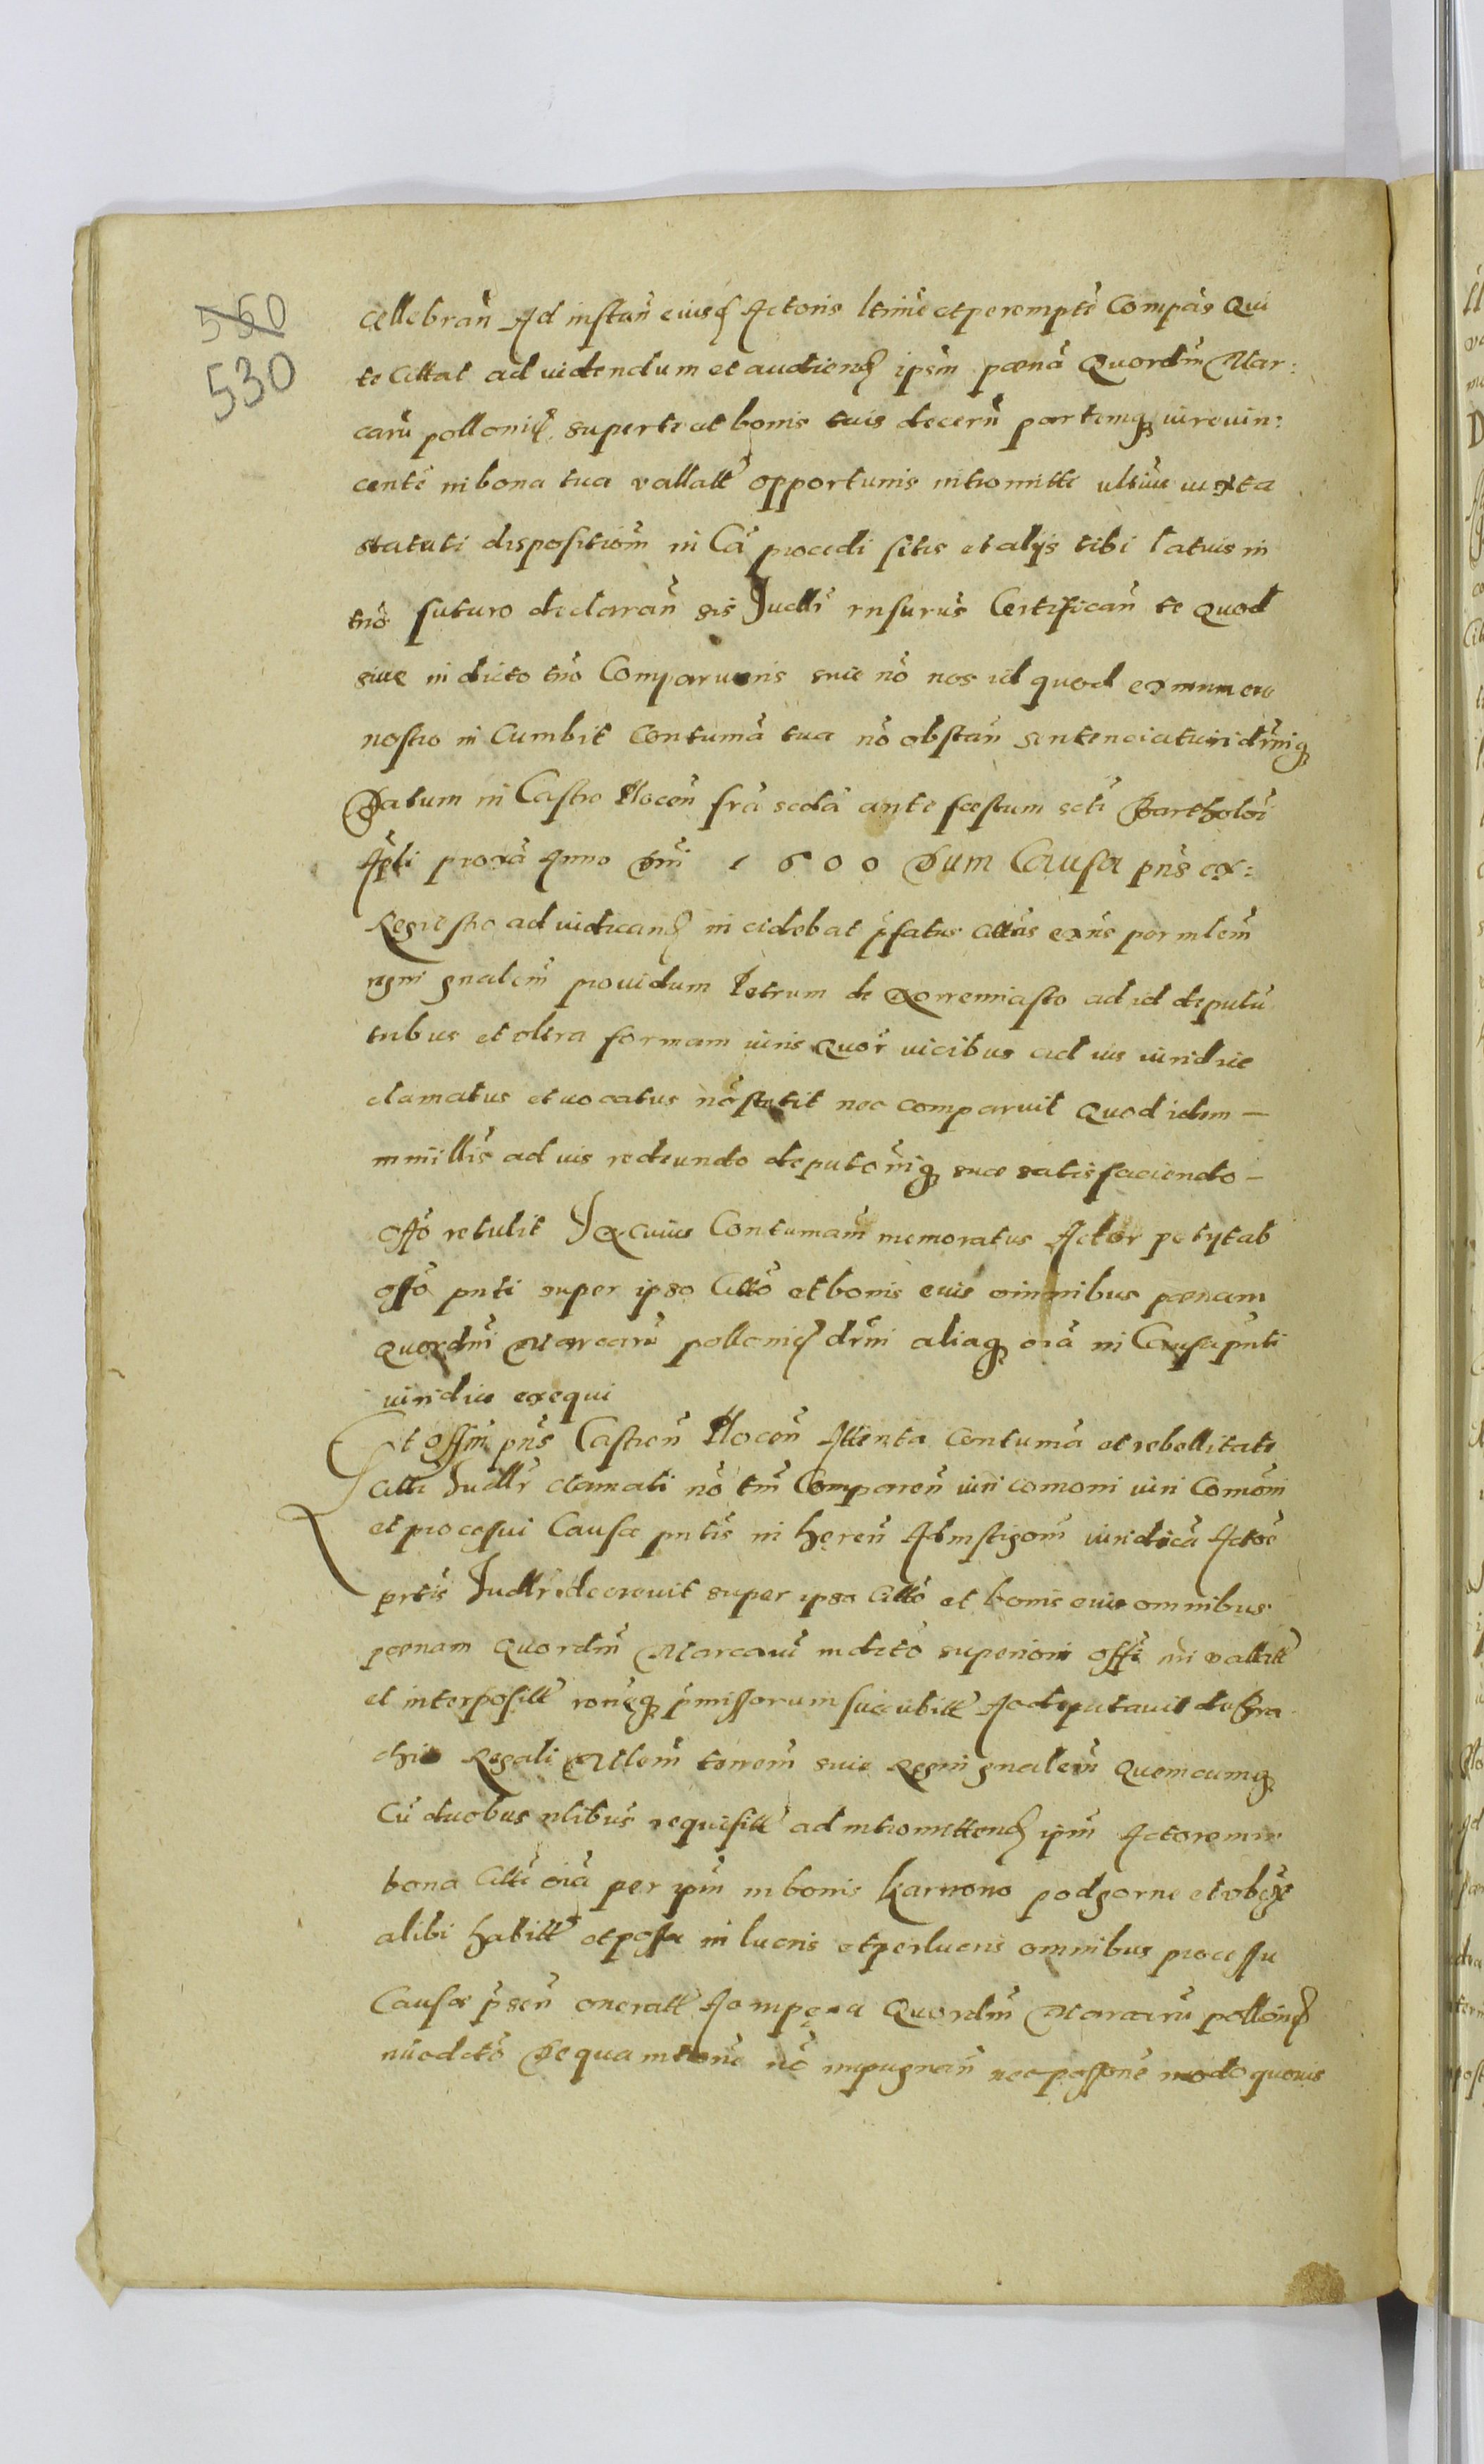 560
530
cellebrań Ad instań eiusd Actoris ltimē et perempte Compās Qui
te Cittat ad videndum et audiend ipsm pœnā Quordm Mar:
carū pollonic super te et bonis tuis decerń partemq iure vin:
centē in bona tua vallatt opportunis intromitti ulterius iuxta
statuti dispositiom in Cā procedi sitis et alijs tibi latius in
tno futuro declarań sis Iudlr rnsurus Certifican te quod
siue in dicto tno Comparueris siue no nos id quod ex munere
nostro in Cumbit Contumā tua nō obstań
Datum in Castro Plocen frā scdā ante fœstum scti Bartholōi
Apli proxā Anno Dni 1600 Dum Causa pns ex:
Regestro ad iudicand in cidebat pfatus Cittus per mlem
regni gnalem providum Petrum de ad id deputū
tribus et vltra formam iuris Quor vicibus ad ius iuridice
clamatus et vocatus nō stetit nec comparuit Quod idem —
ad ius redeundo suæ satisfaciendo —
offō retulit Ex cuius Contumam memoratus Actor petijtab
offō pnti super ipso Cittō et bonis eius omnibus pœnam
quordm Marcarū pollonic drni aliaq oiā in Causa pnti
iuridice exequi
Et offm pns Castren Plocen Attenta Contumā et rebellitate
Citti Iudlr clamati nō tm Comparen iuri comoni iuri Comōni
et processui Causæ pntis in heren Ad instigom iuridicā Actoē
prtis Iudlr decrevit super ipso Cittō et bonis eius omnibus
pœnam Quordm Marcarū superiori offi vallatt
et interposītt pmissorum Ac deputavit de Bra
chio Regali Mlem terrem siue Regni gnalem Quemcumq
Cū duobus nlibus requisitt ad intromittend ipm Actorem in
bona Citti oiā per ipm in bonis Karwono podgorne et vbiq
alibi habitt et possa in lucris et perlucris omnibus processu
Causæ psen oneratt Quordm Marcarū pollonic
De qua nō impugnań nec modo quovis